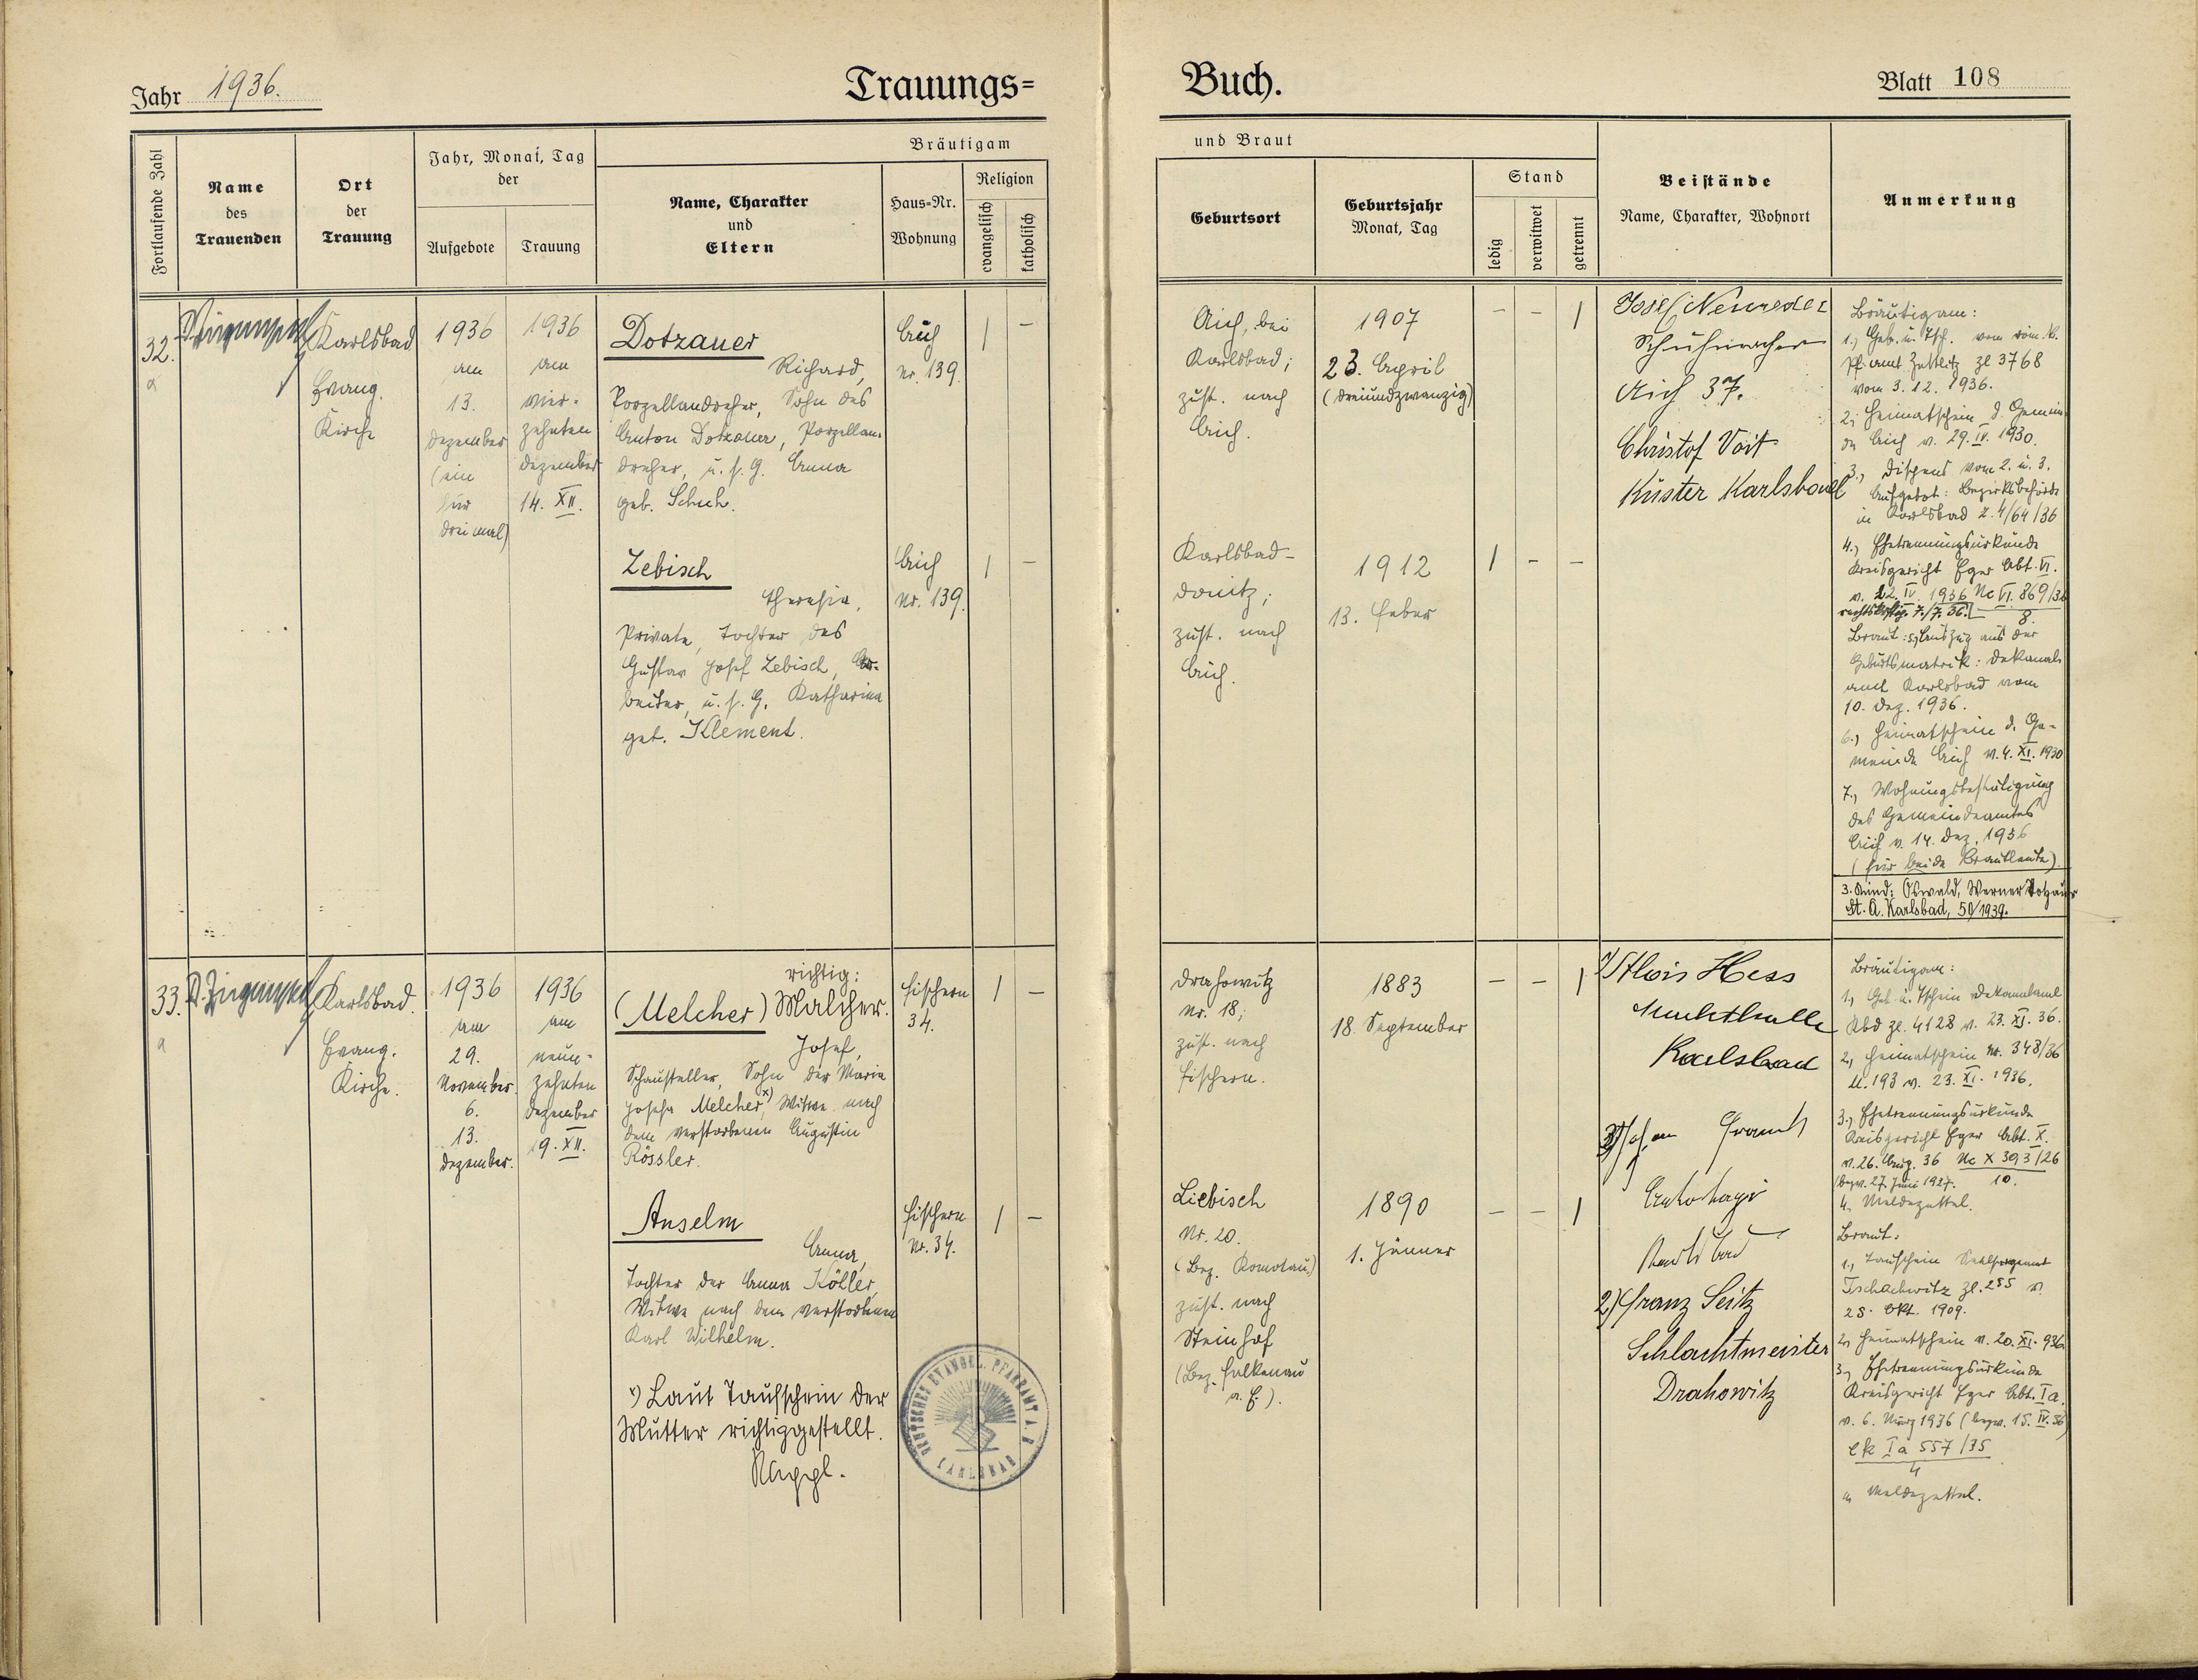 Jahr 1936.
Trauungs=
Buch.
Blatt 108
Fortlaufende Zahl
Name
des
Trauenden
Ort
der
Trauung
Jahr, Monat, Tag
der
Aufgebote
Trauung
Bräutigam
Name, Charakter
und
Eltern
Haus=Nr.
Wohnung
Religion
evangelisch
katholisch
und Braut
Geburtsort
Geburtsjahr
Monat, Tag
Stand
ledig
verwitwet
getrennt
Beistände
Name, Charakter, Wohnort
Anmerkung
32.
Karlsbad
Evang.
Kirche
1936
am
13.
Dezember
(ein
für
dreimal)
1936
am
vier-
zehnten
Dezember
14. XII.
Dotzauer
Richard,
Porzellandreher, Sohn des
Anton Dotzauer, Porzellan-
dreher, u. s. G. Anna
geb. Schuh.
Aich
Nr. 139.
| –
Zebisch
Theresia,
Private, Tochter des
Gustav Josef Zebisch, Ar-
beiter, u. s. G. Katharina
geb. Klement.
Aich
Nr. 139.
| –
Aich, bei
Karlsbad;
zust. nach
Aich.
1907
23. April
(dreiundzwanzig)
– – |
Karlsbad-
Donitz;
zust. nach
Aich.
1912
13. Feber
| – –
Josef Neureder
Schuhmacher
Aich 37.
Christof Voit
Küster Karlsbad
Bräutigam:
1., Geb. u. Tsch. vom röm. k.
Pf. amt Zettlitz Zl 3768
vom 3. 12. 1936.
2., Heimatschein d. Gemein-
de Aich v. 29. IV. 1930.
3., Dispens vom 2. u. 3.
Aufgebot: Bezirksbehörde
in Karlsbad Z. 4/64/36
4., Ehetrennungsurkunde
Kreisgericht Eger Abt. VI.
v. 22. IV. 1936 Nc VI. 869/36
rechtskräftig 7./7. 36. 8.
Braut: 5., Auszug aus der
Geburtsmatrik: Dekanal-
amt Karlsbad vom
10. Dez. 1936.
6., Heimatschein d. Ge-
meinde Aich v. 4. XI. 1930
7., Wohnungsbestätigung
des Gemeindeamtes
Aich v. 14. Dez. 1936
(für beide Brautleute).
3. Kind: Oswald, Werner Dotzauer
St. A. Karlsbad, 50/1939.
33.
Karlsbad.
Evang.
Kirche.
1936
am
29.
November.
6.
13.
Dezember.
1936
am
neun-
zehnten
Dezember
19. XII.
richtig:
(Melcher) Malcher.
Josef,
Schausteller, Sohn der Maria
Josefa Melcher x), Witwe nach
dem verstorbenen Augustin
Rössler.
Fischern
34.
| –
Anselm
Anna,
Tochter der Anna Köller,
Witwe nach dem verstorbenen
Karl Wilhelm.
Fischern
Nr. 34.
| –
x) Laut Taufschein der
Mutter richtiggestellt.
DEUTSCHES EVANGEL. PFARRAMT A. B.
KARLSBAD
Drahowitz
Nr. 18;
zust. nach
Fischern.
1883
18. September
– – |
Liebisch
Nr. 20.
(Bez. Komotau)
zust. nach
Steinhof
(Bez. Falkenau
a. E.).
1890
1. Jänner
– – |
1) Alois Hess
Markthalle
Karlsbad
Karlsbad
2) Franz Seitz
Schlachtmeister
Drahowitz
Bräutigam:
1., Geb. u. Tschein Dekanalamt
Kbd Zl. 4128 v. 23. XI. 36.
2., Heimatschein Nr. 348/36
U. 193 v. 23. XI. 1936.
3., Ehetrennungsurkunde
Kreisgericht Eger Abt. X.
v. 26. Aug. 36 Nc X 393/26
(bezw. 27. Juni 1927. 10.
4. Meldezettel.
Braut:
1., Taufschein Seelsorgeamt
Tschachwitz Zl. 255 v.
25. Okt. 1909.
2., Heimatschein v. 20. XI. 936.
3., Ehetrennungsurkunde
Kreisgericht Eger Abt. Ia.
v. 6. März 1936 (bezw. 15. IV. 36)
Ck Ia 557/35
4
4. Meldezettel.